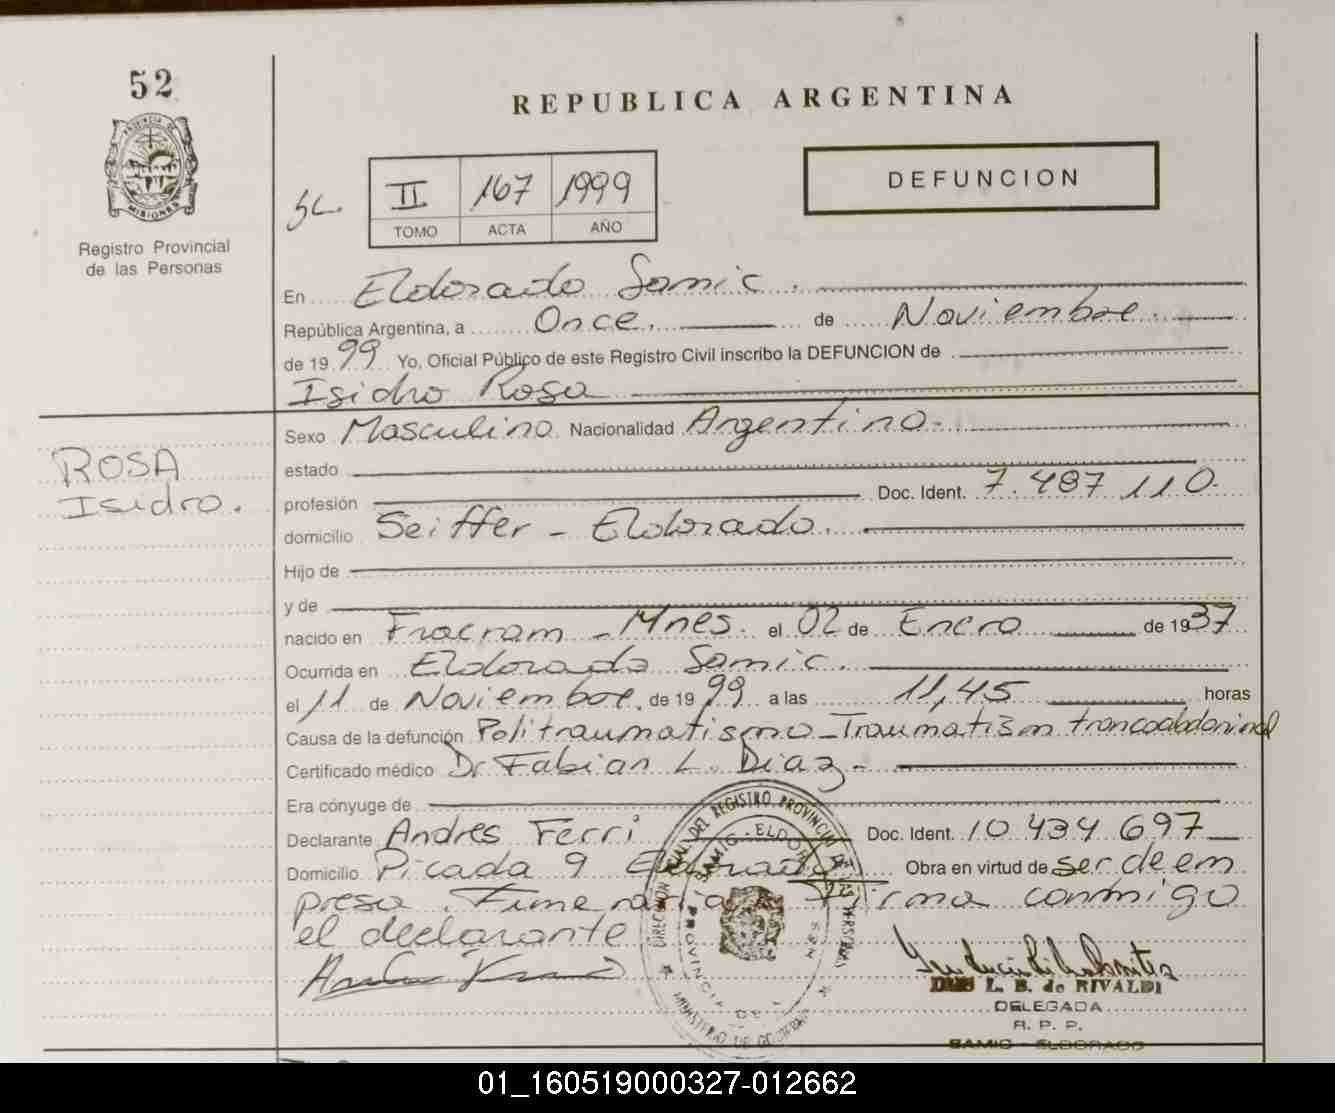 52
REPUBLICA ARGENTINA
PROVINCIA DE MISIONES
Registro Provincial
de las Personas
DEFUNCION
II 167 1999
TOMO ACTA AÑO
En Eldorado Samic.
República Argentina, a Once. de Noviembre.
de 1999 Yo, Oficial Público de este Registro Civil inscribo la DEFUNCION de
Isidro Rosa
ROSA
Isidro.
Sexo Masculino Nacionalidad Argentino.
estado
profesión Doc. Ident. 7.487 110.
domicilio Seiffer - Eldorado.
Hijo de
y de
nacido en Fracram - Mnes. el 02 de Enero de 1937
Ocurrida en Eldorado Samic.
el 11 de Noviembre. de 1999 a las 11,45 horas
Causa de la defunción Politraumatismo - Traumatism troncoabdominal
Certificado médico Dr Fabian L. Diaz -
Era cónyuge de
Declarante Andres Ferri Doc. Ident. 10 434 697
Domicilio Picada 9 Eldorado Obra en virtud de ser de em
presa Funeraria Firma conmigo
el declarante
L. B. de RIVALDI
DELEGADA
R. P. P.
SAMIC - ELDORADO
01_160519000327-012662